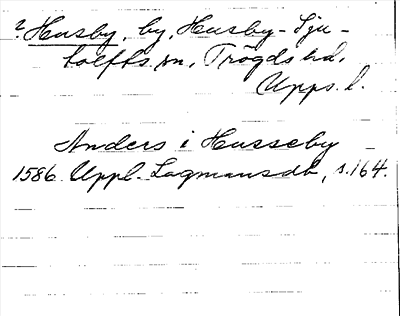 ? Husby, by, Husby-Sju-
tolfts sn, Trögds hd,
Upps. l.
Anders i Husseby
1586 Uppl. Lagmansdb, s. 164.